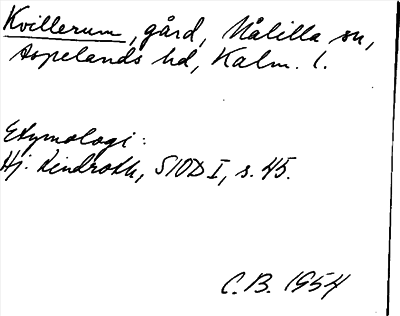 Kvillerum, gård, Målilla sn,
Aspelands hd, Kalm. l.
Etymologi:
Hj. Lindroth, SIOD I, s. 45.
C.B. 1954